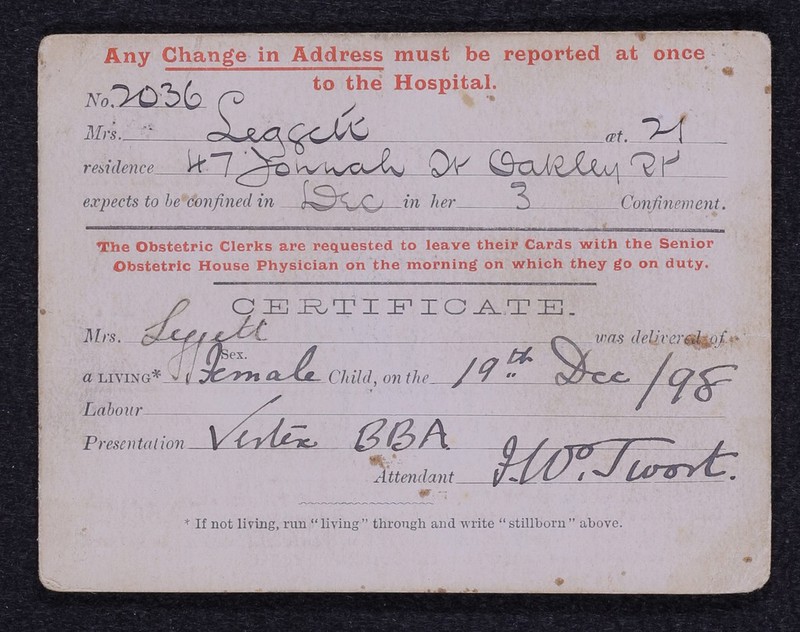 Any Change in Address must be reported at once
to the Hospital.
No. 2036
Mrs. Leggett æt. 21
residence 47 Johnah St Oakley St
expects to be confined in Dec in her 3 Confinement.
The Obstetric Clerks are requested to leave their Cards with the Senior
Obstetric House Physician on the morning on which they go on duty.
CERTIFICATE.
Mrs. Leggett was delivered of
Sex.
a LIVING* Female Child, on the 19th Dec /98
Labour
Presentation Vertex BBA
Attendant F. W. Twort.
* If not living, run "living" through and write "stillborn" above.